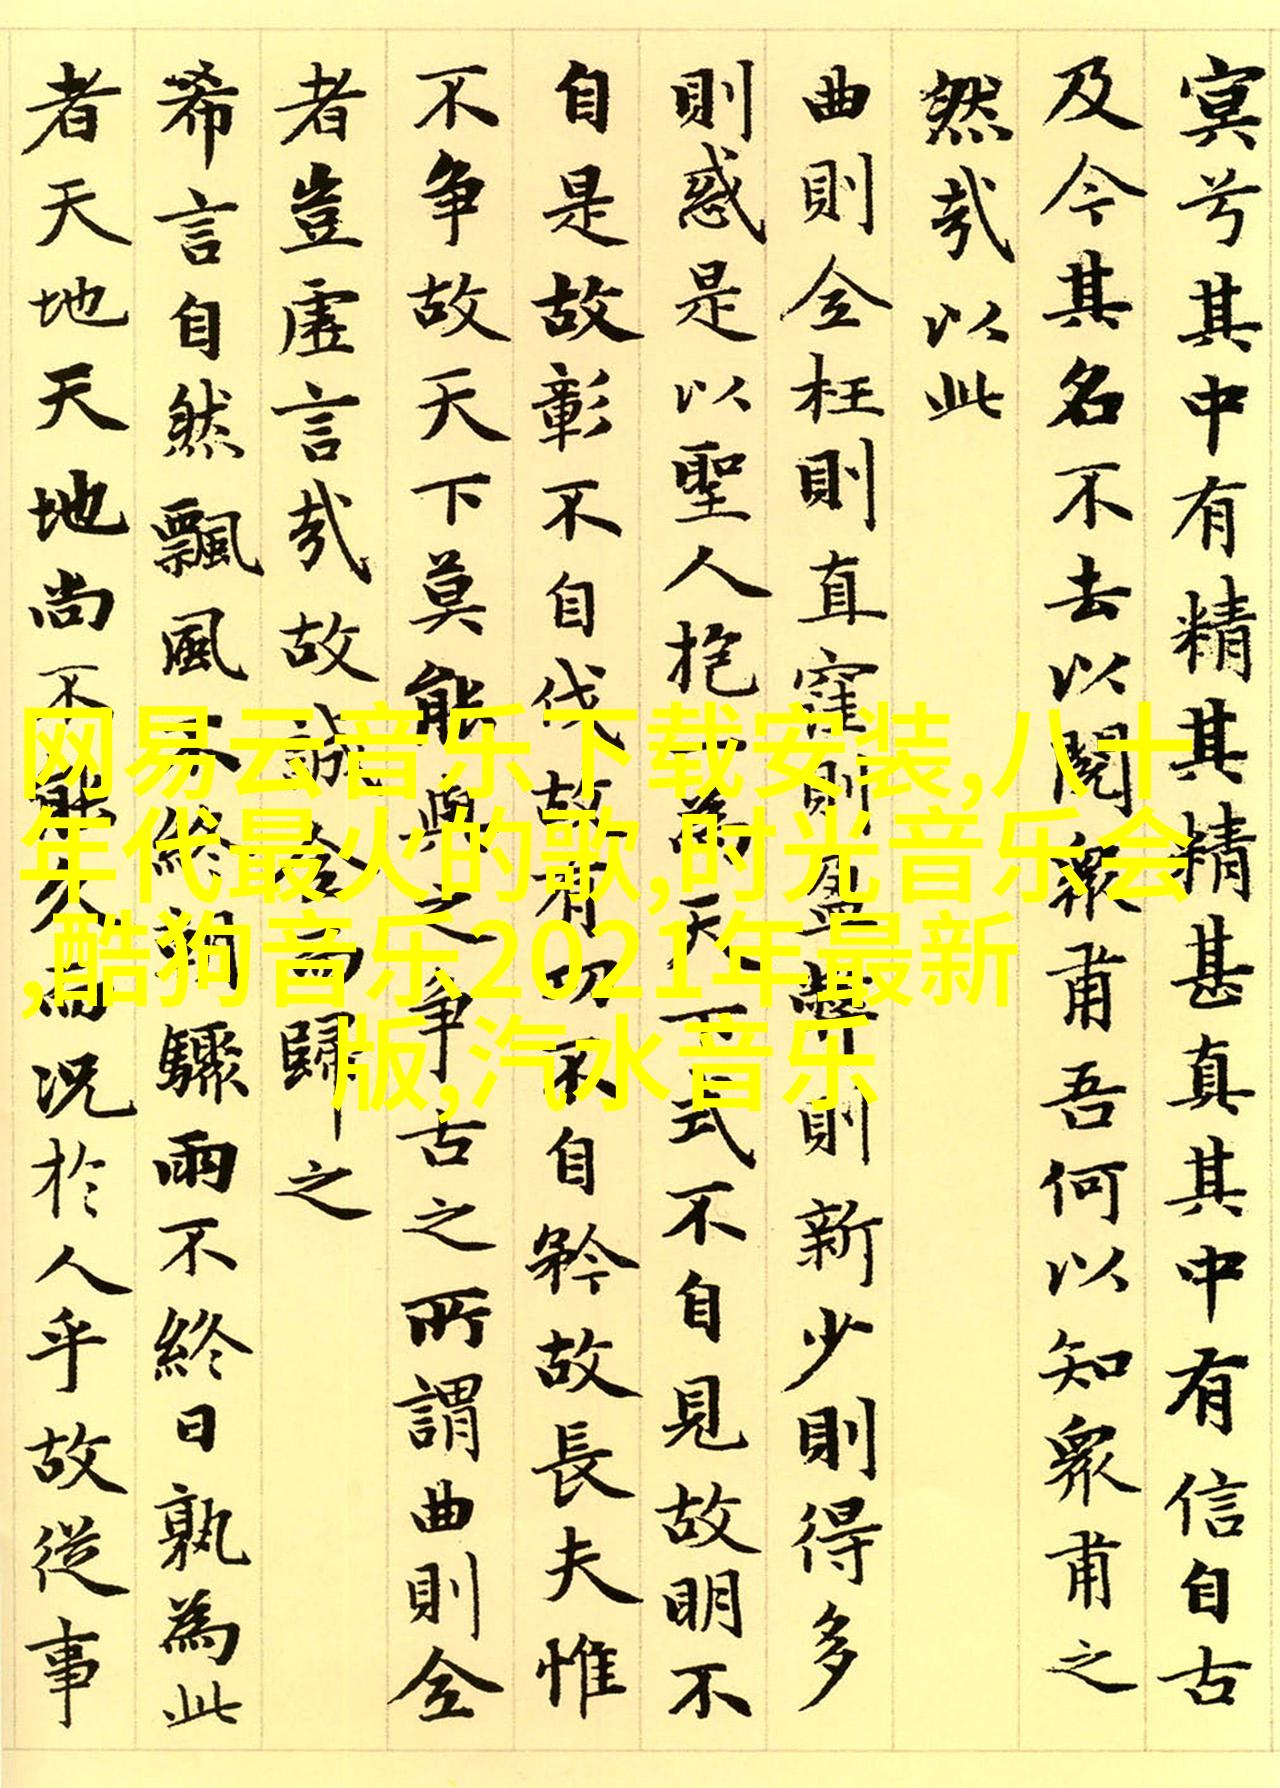 冥兮其中有精其精甚真其中有信自古
及今其名不去以閱衆甫吾何以知衆甫之
然哉以此
曲則全枉則直窪則盈弊則新少則得多
則惑是以聖人抱一為天下式不自見故明不
自是故彰不自伐故有功不自矜故長夫惟
不争故天下莫能與之争古之所謂曲則全
者豈虛言哉故誠全而歸之
希言自然飄風不終朝驟雨不終日孰為此
者天地天地尚不能久而况於人乎故從事
网易云音乐下载安装,八十
年代最火的歌,时光音乐会
,酷狗音乐2021年最新
版,汽水音乐